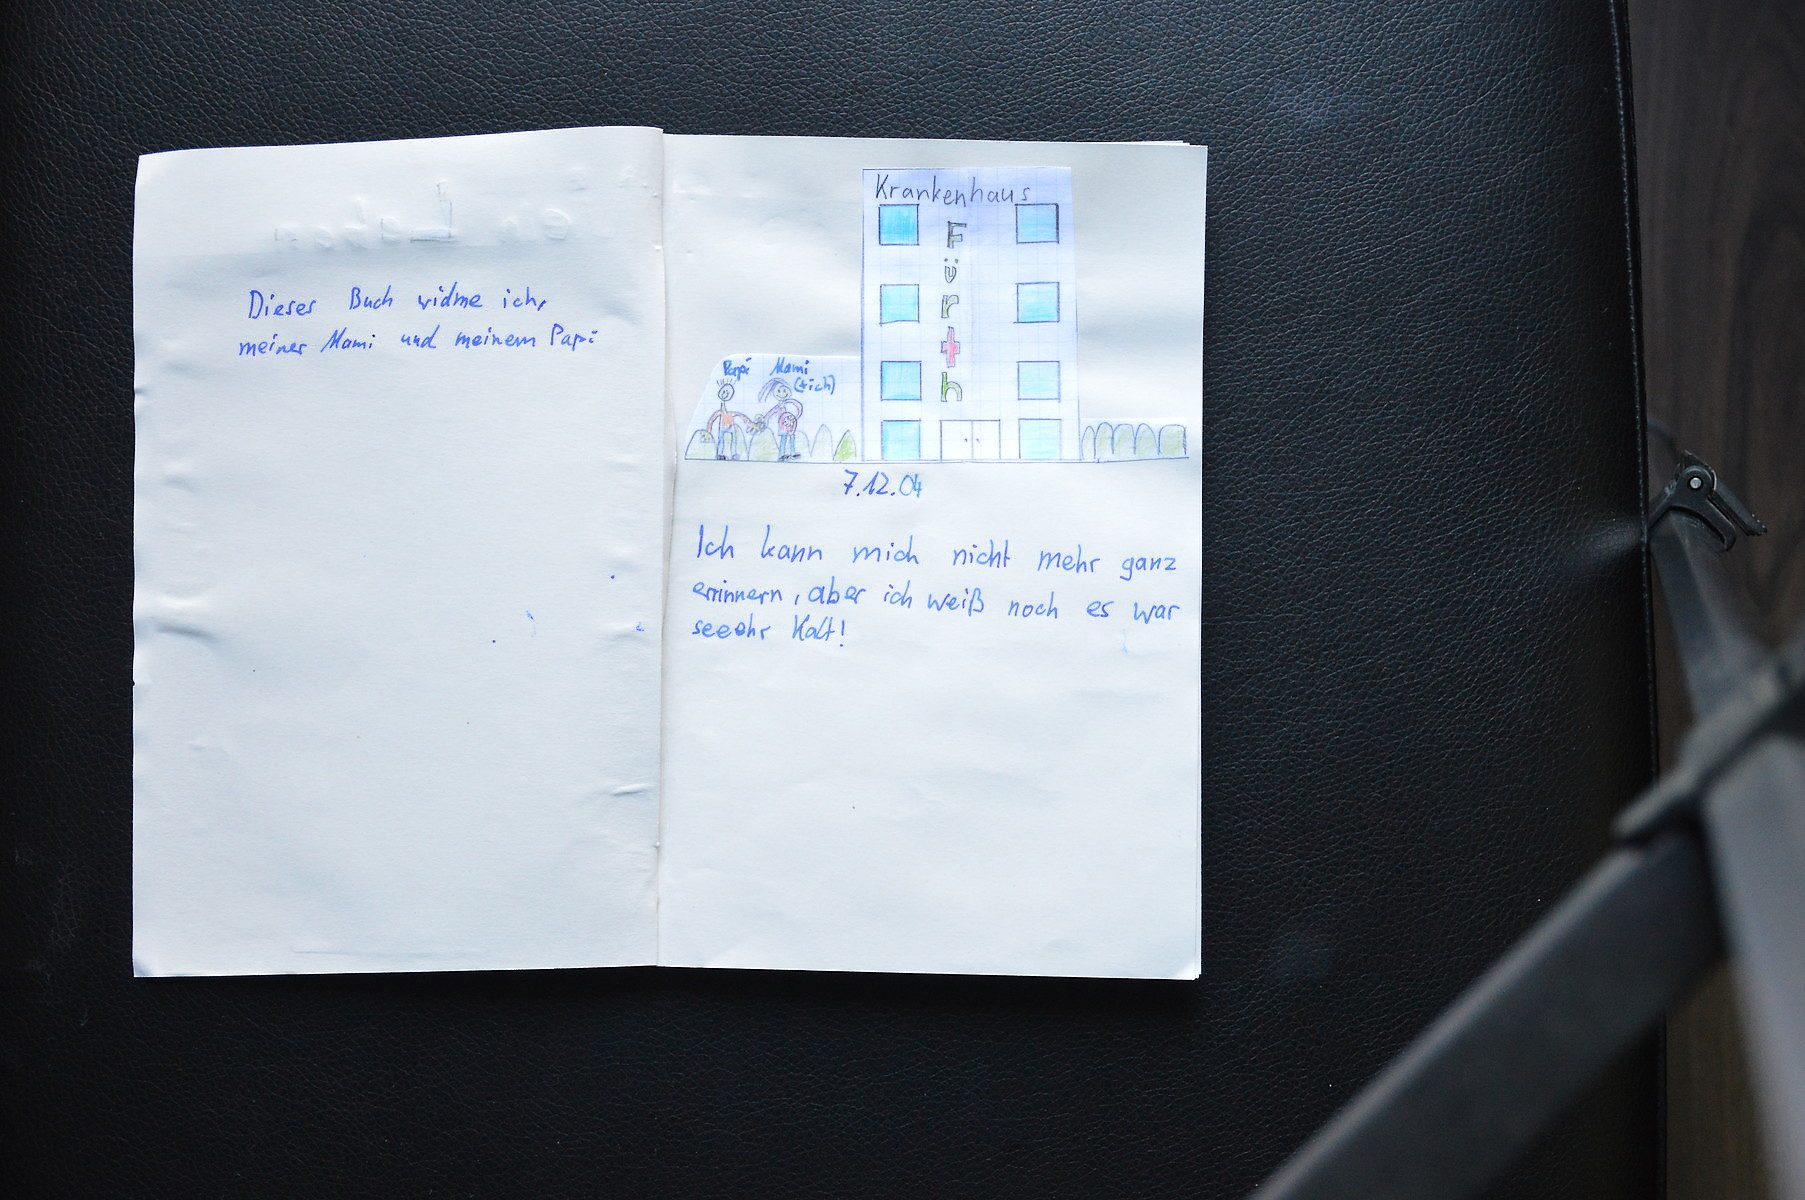 Dieses Buch widme ich,
meiner Mami und meinem Papi
Krankenhaus
Fürth
Papi Mami
(+ich)
7.12.04
Ich kann mich nicht mehr ganz
errinnern, aber ich weiß noch es war
seeehr Kalt!